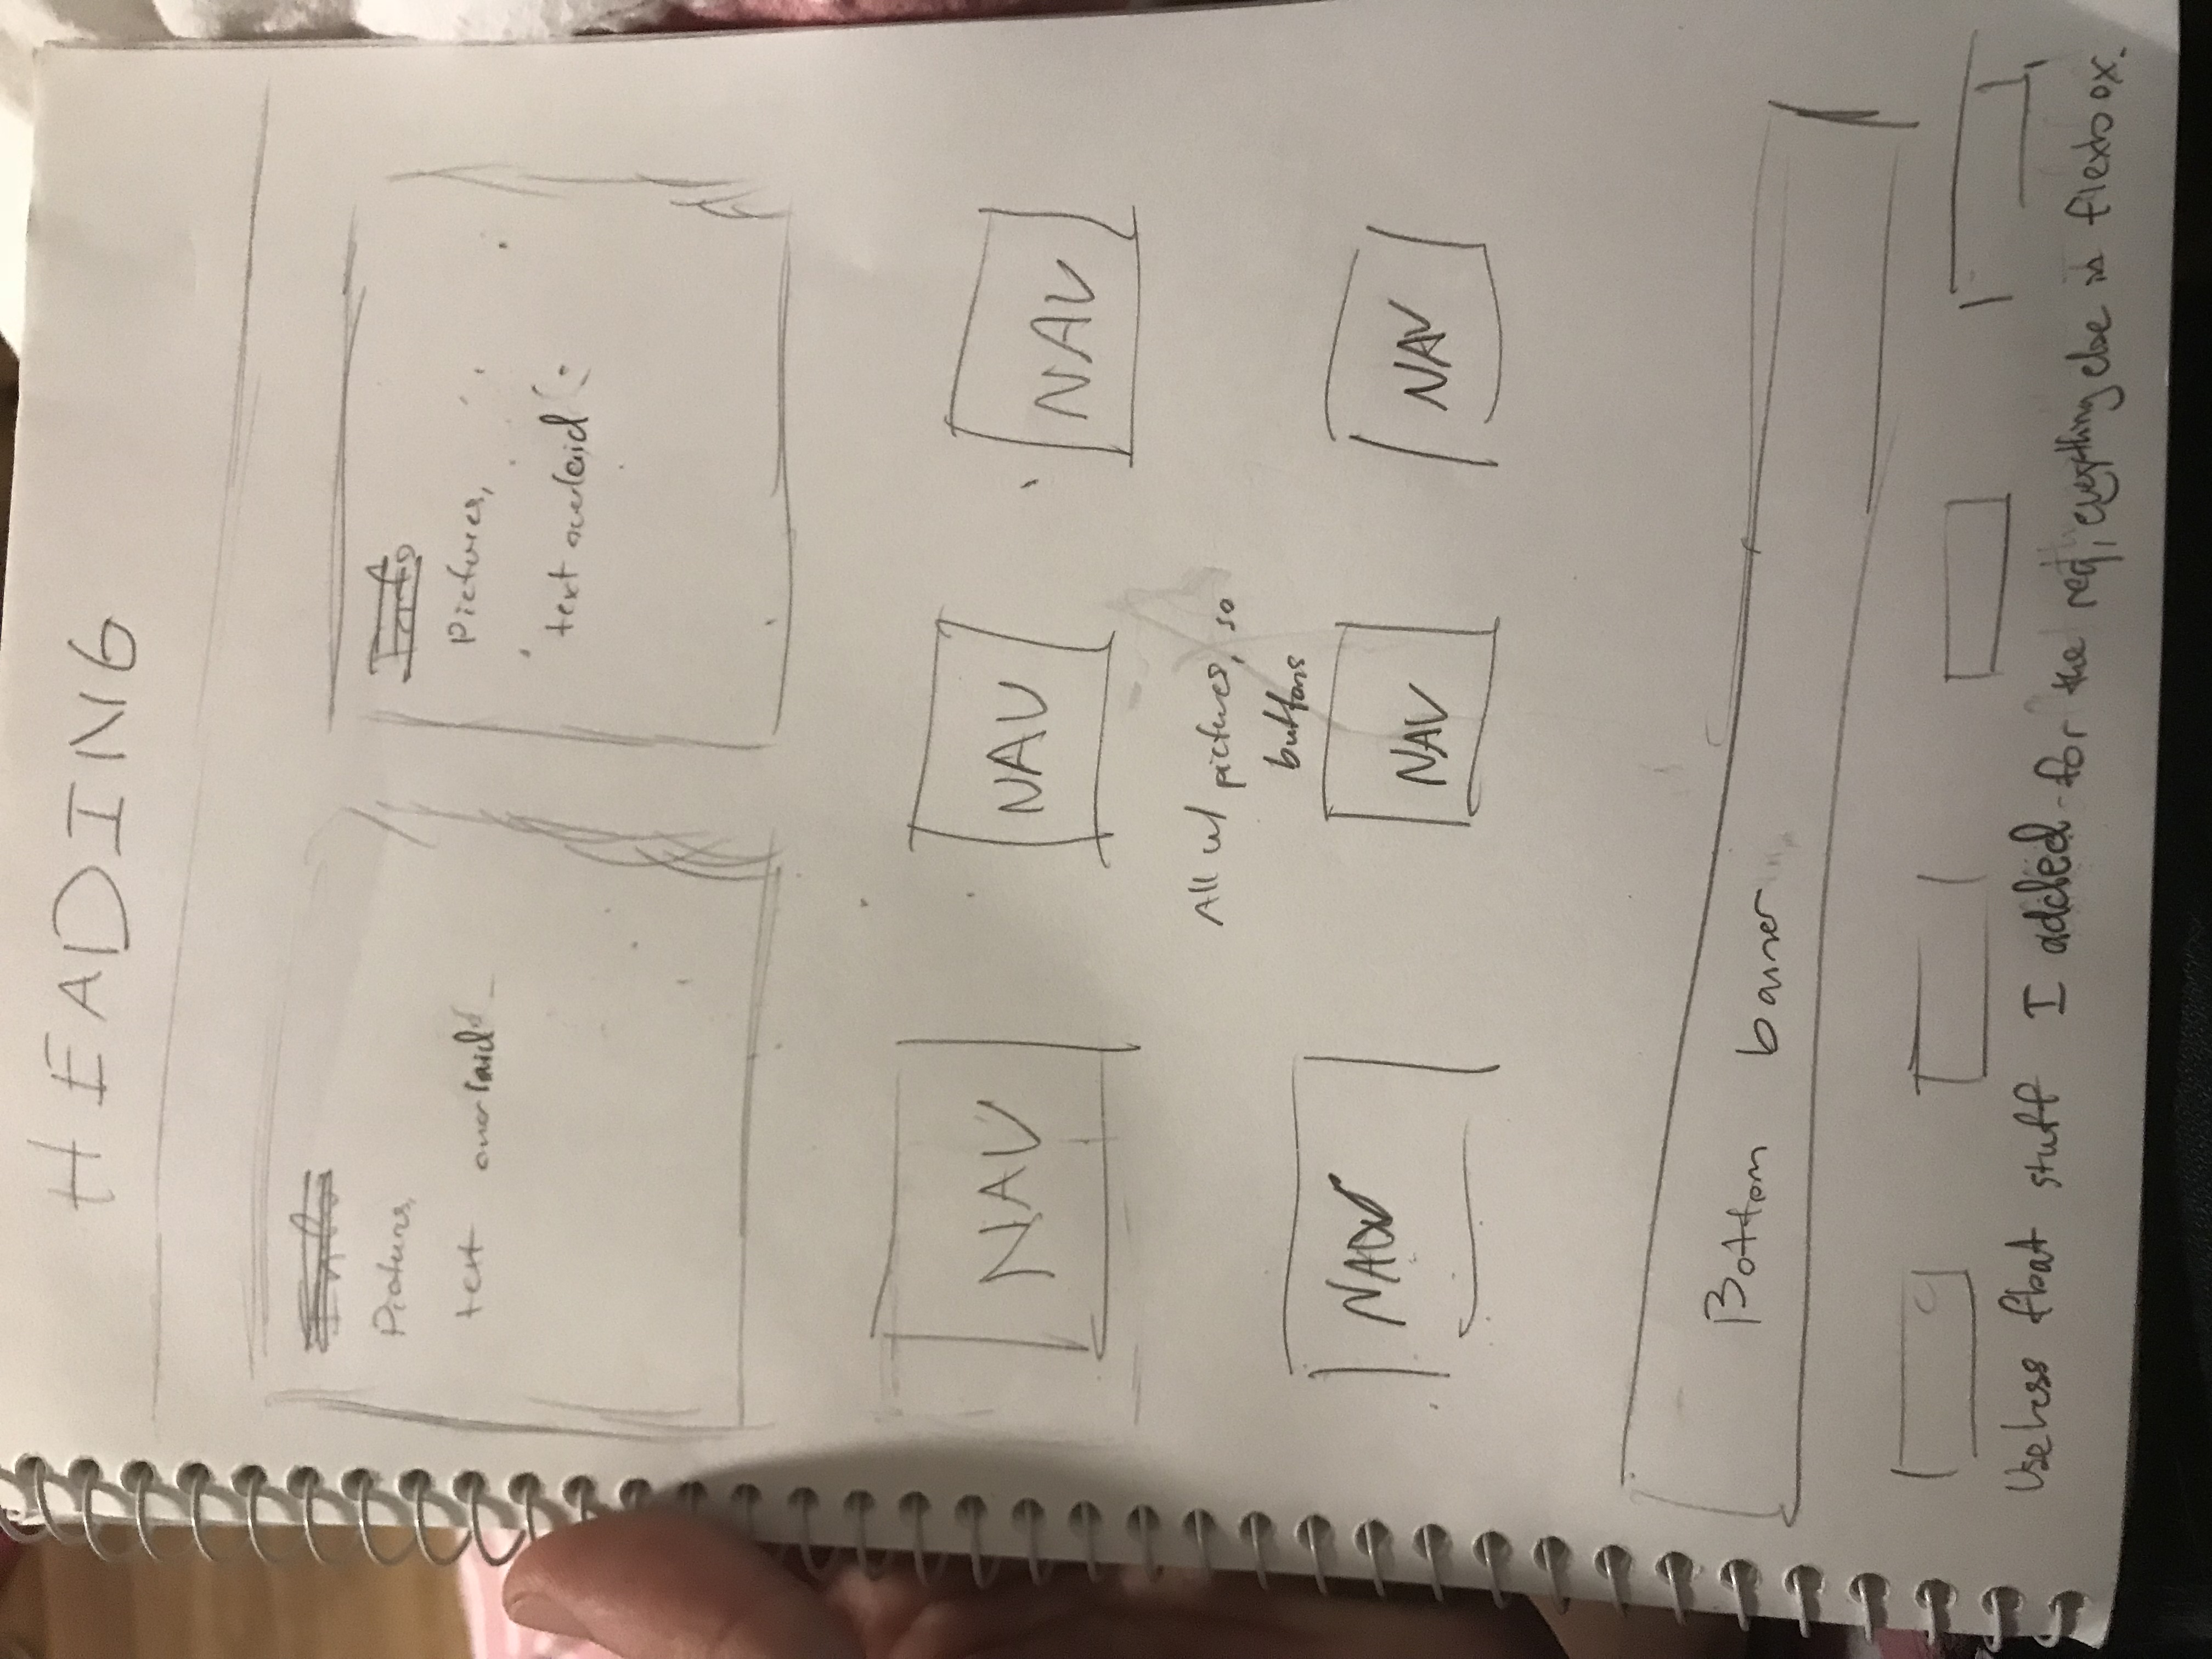 HEADING
Info
Info
Pictures,
text overlaid
Pictures,
text overlaid
NAV
NAV
NAV
All w/ pictures, so
buttons
NAV
NAV
NAV
Bottom banner
Useless float stuff I added for the req, everything else is flexbox.